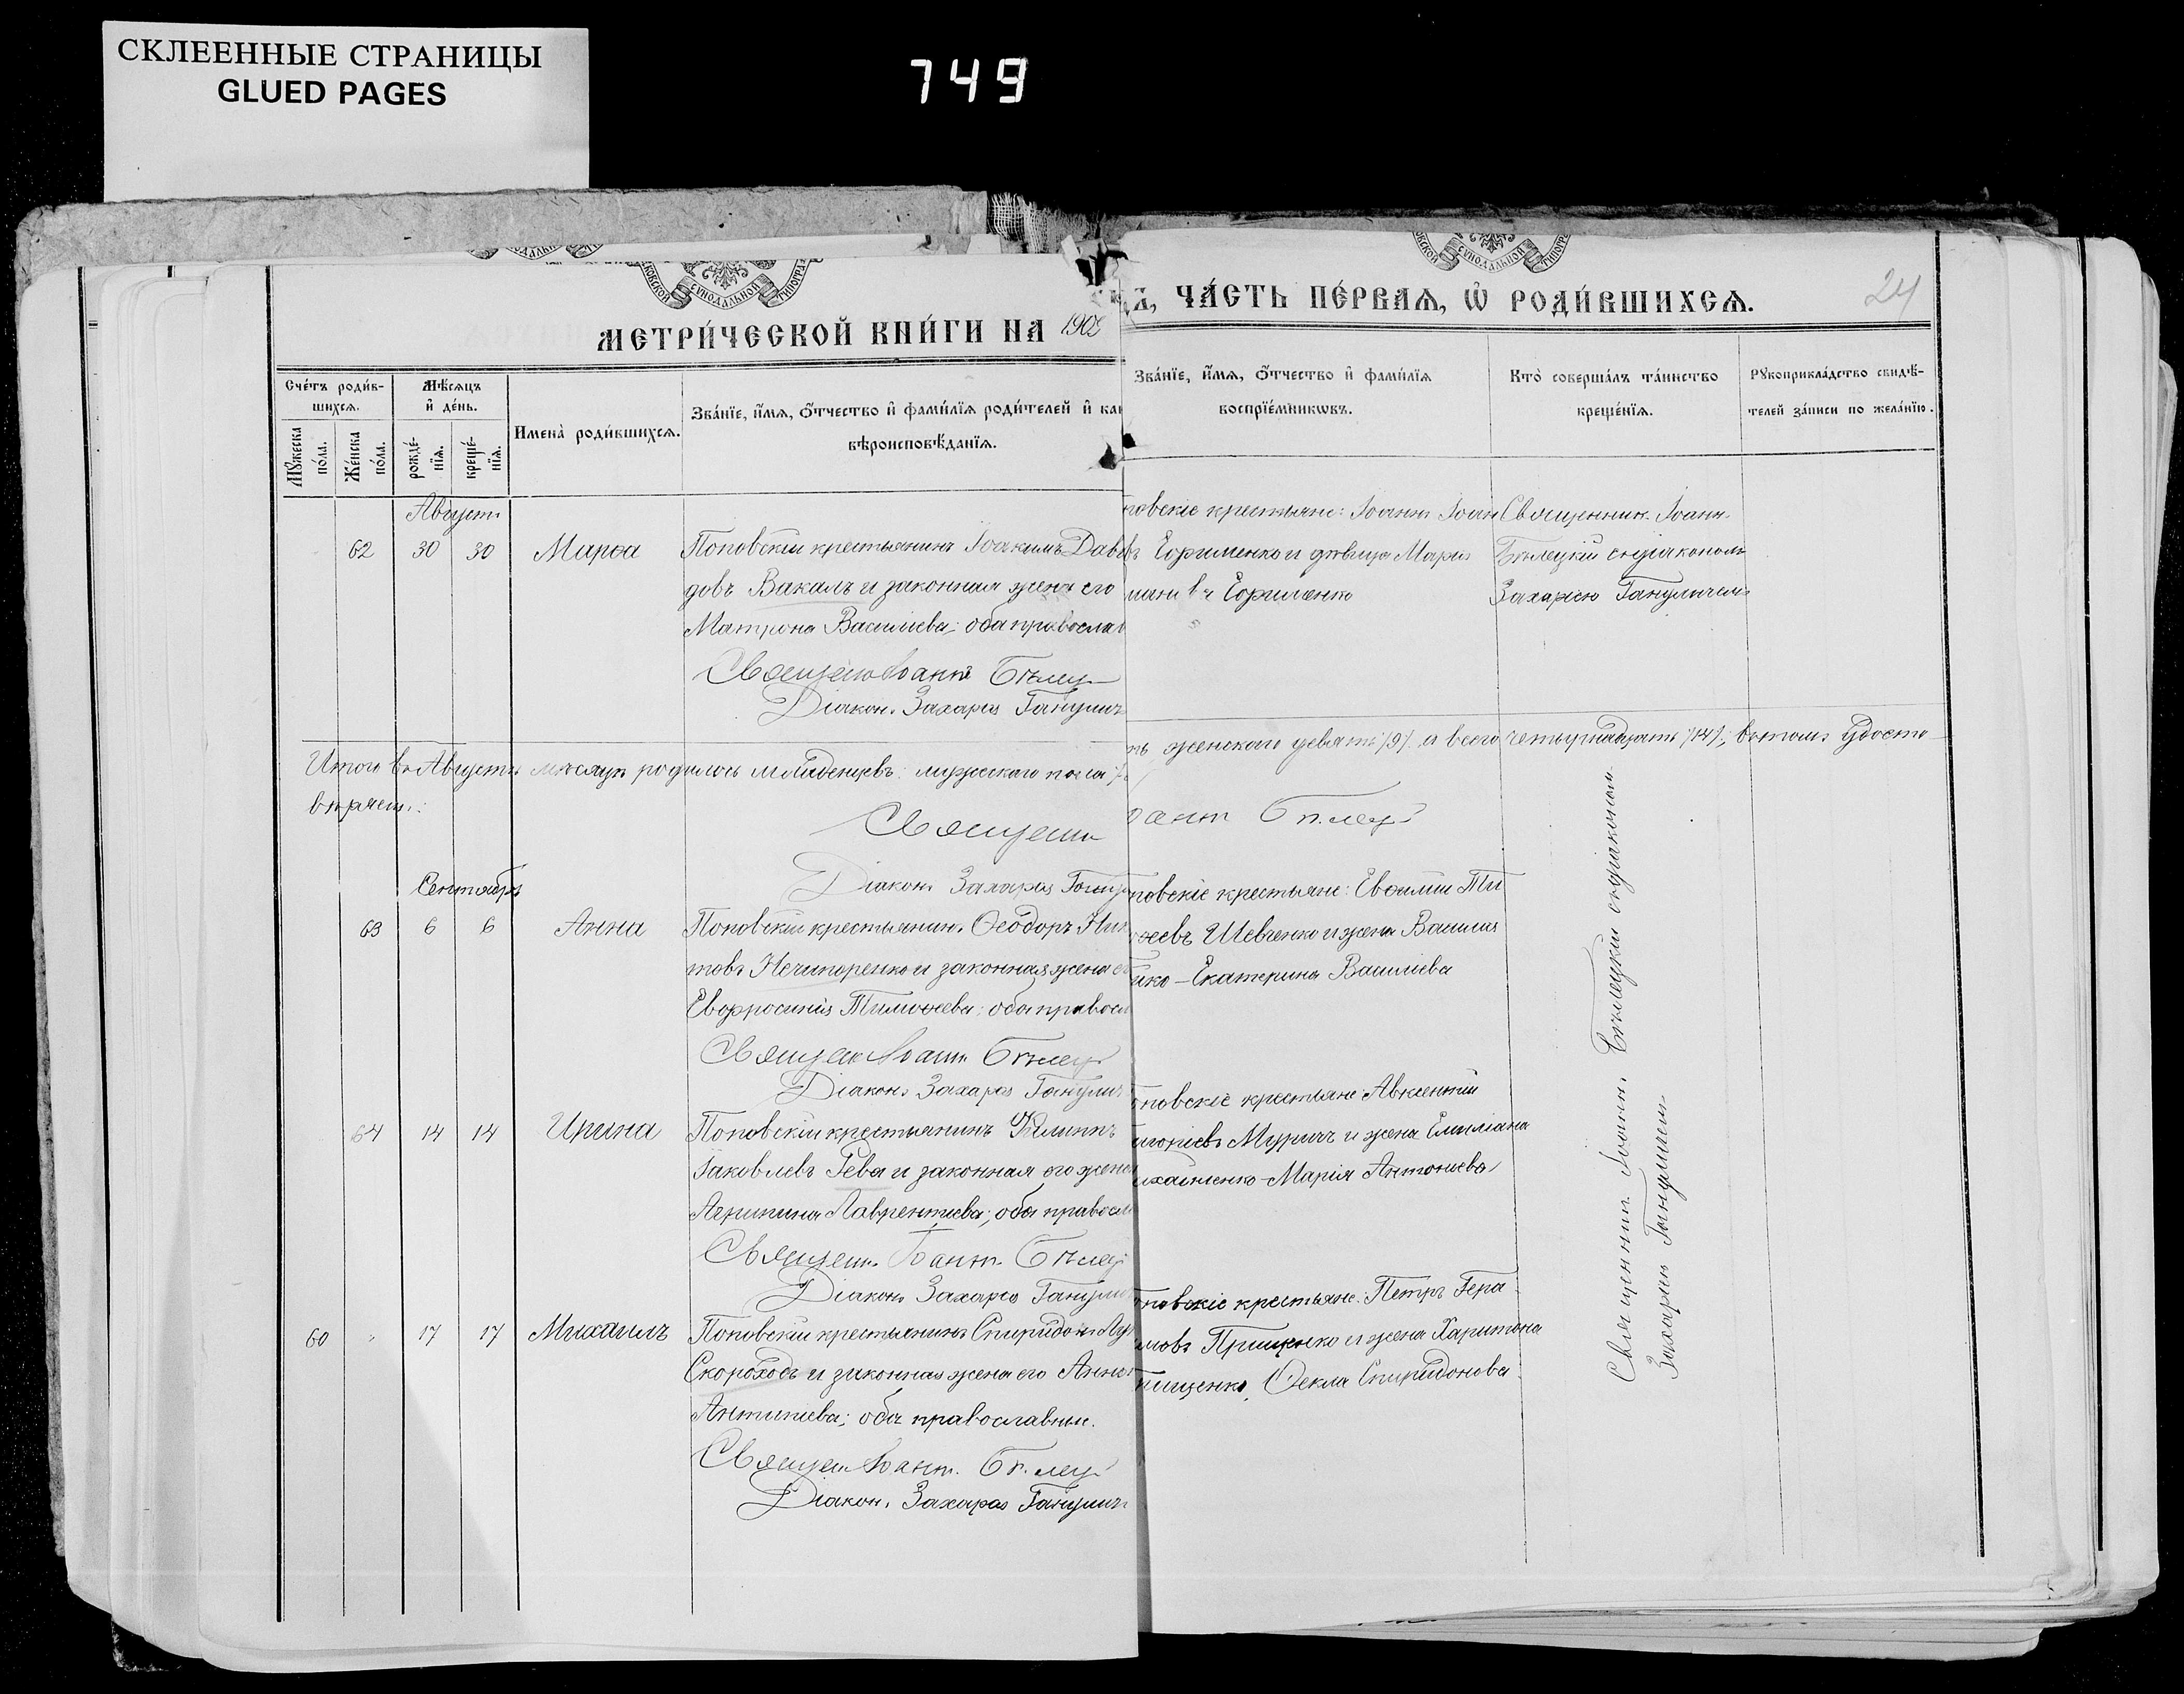 СКЛЕЕННЫЕ СТРАНИЦЫ
GLUED PAGES
749
МЕТРИ́ЧЕСКОЙ КНИ́ГИ НА 190
ЧА́СТЬ ПЕ́РВАЯ, Ѡ РОДИ́ВШИХСЯ.
24
Сче́тъ роди́в-
шихся.
Мѣсяцъ
и҆ де́нь.
Мꙋ́жеска по́ла.
Же́нска по́ла.
рожде́-нїя.
креще́-нїя.
Имена̀ роди́вшихся.
Зва́нїе, и҆́мя, ѻ҆́тчество и҆ фами́лїя роди́телей и҆ ка
вѣроисповѣ́данїя.
Зва́нїе, и҆́мя, ѻ҆́тчество и҆ фами́лїя
воспрїе́мникѡвъ.
Кто̀ соверша́лъ та́инство
креще́нїя.
Рꙋкоприкла́дство свидѣ́-
телей за́писи по жела́нїю.
Августъ
62 30 30 Марѳа Поповскій крестьянинъ Іоакимъ Дави
довъ Вакалъ и законная жена его
Матрона Василіева; оба православ
Священ Іоаннъ Бѣлец
Діаконъ Захарія Ганулич
повскіе крестьяне: Іоаннъ Іоан
въ Ефименко и дѣвица Марія
Ефименко
Священникъ Іоаннъ
Бѣлецкій съ діакономъ
Захаріею Гануличемъ
Итого въ Августѣ мѣсяцѣ родилось младенцевъ: мужескаго пола
женскаго девять /9/ а всего четырнадцать /14/; въ томъ удосто
вѣряемъ:
Священн
оаннъ Бѣлец
Діаконъ Захарія Ганул
Сентябрь
63 6 6 Анна Поповскій крестьянинъ Ѳеодоръ Ник
товъ Нечипоренко и законная жена его
Евфросинія Тимоѳеева; оба правосл
Священ Іоаннъ Бѣлец
Діаконъ Захарія Гануличъ
повскіе крестьяне: Евѳимій Ти
ѳеевъ Шевченко и жена Василія
йко - Екатерина Василіева
64 14 14 Ирина Поповскій крестьянинъ Филиппъ
Іаковлевъ Гева и законная его жена
Агрипина Лаврентіева; оба правосл
Священ Іоаннъ Бѣлец
Діаконъ Захарія Гануличъ
повскіе крестьяне: Авксентій
игоріевъ Муричъ и жена Емиліана
ихайленко - Марія Антоніева
60 17 17 Михаилъ Поповскій крестьянинъ Спиридонъ
Скороходъ и законная жена его Анна
Антипіева; оба православные.
Священ Іоаннъ Бѣлец
Діаконъ Захарія Гануличъ
повскіе крестьяне: Петръ Гера
мовъ Прищенко и жена Харитона
пищенко, Ѳекла Спиридонова
Священникъ Іоаннъ Бѣлецкій съ діакономъ
Захаріею Гануличемъ